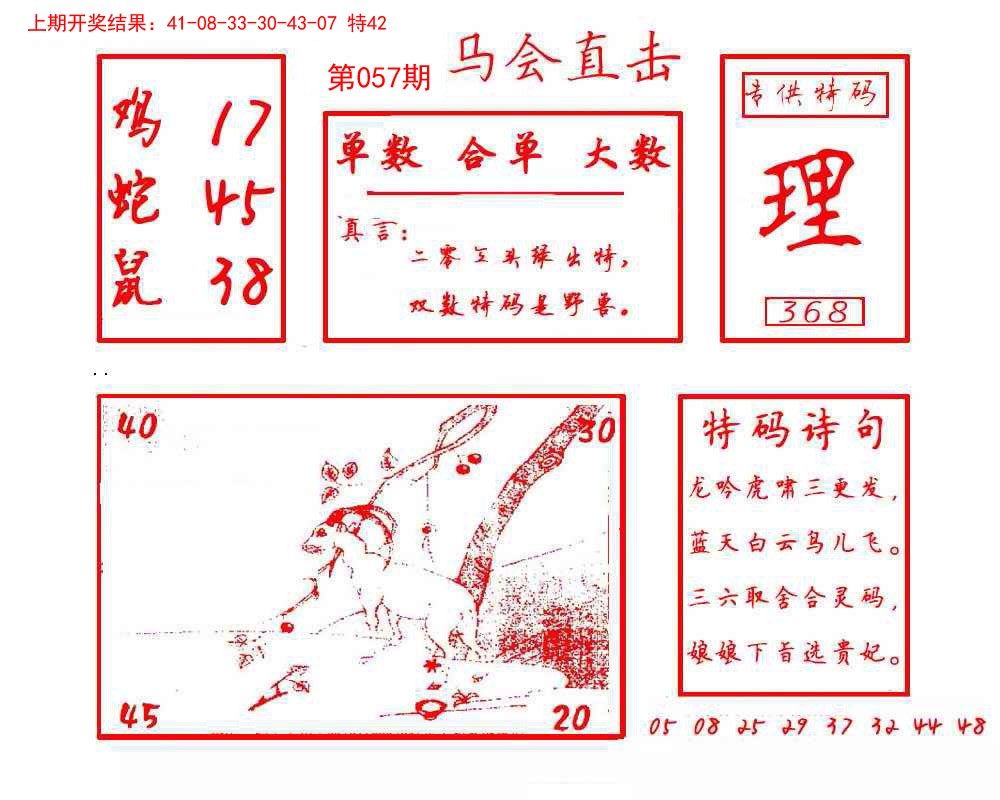 上期开奖结果：41-08-33-30-43-07 特42
第057期
马会直击
鸡 17
蛇 45
鼠 38
单数 合单 大数
真言：
二零立头绿出特，
双数特码是野兽。
专供特码
理
368
40
30
45
20
特码诗句
龙吟虎啸三更发，
蓝天白云鸟儿飞。
三六取舍合灵码，
娘娘下旨选贵妃。
05 08 25 29 37 32 44 48